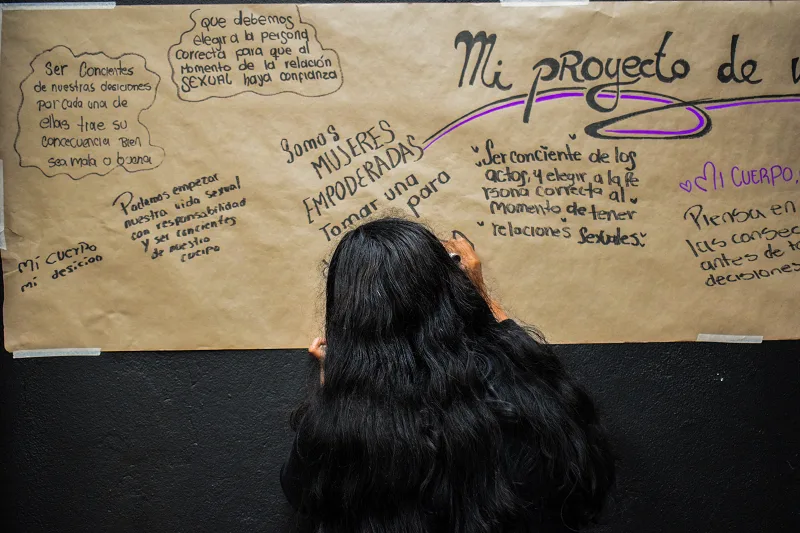 Mi proyecto de v
que debemos
elegir a la persona
correcta para que al
momento de la relación
SEXUAL haya confianza
Ser Concientes
de nuestras desiciones
por cada una de
ellas trae su
concecuencia bien
sea mala o buena
Podemos empezar
nuestra vida sexual
con responsabilidad
y ser concientes
de nuestro
cuerpo
Mi CUERPO
mi desicion
Somos
MUJERES
EMPODERADAS
Tomar una
para
Ser conciente de los
actos, y elegir, a la Pe
rsona correcta al
Momento de tener
relaciones Sexuales.
Mi CUERPO,
Piensa en
las consec
antes de to
decisiones